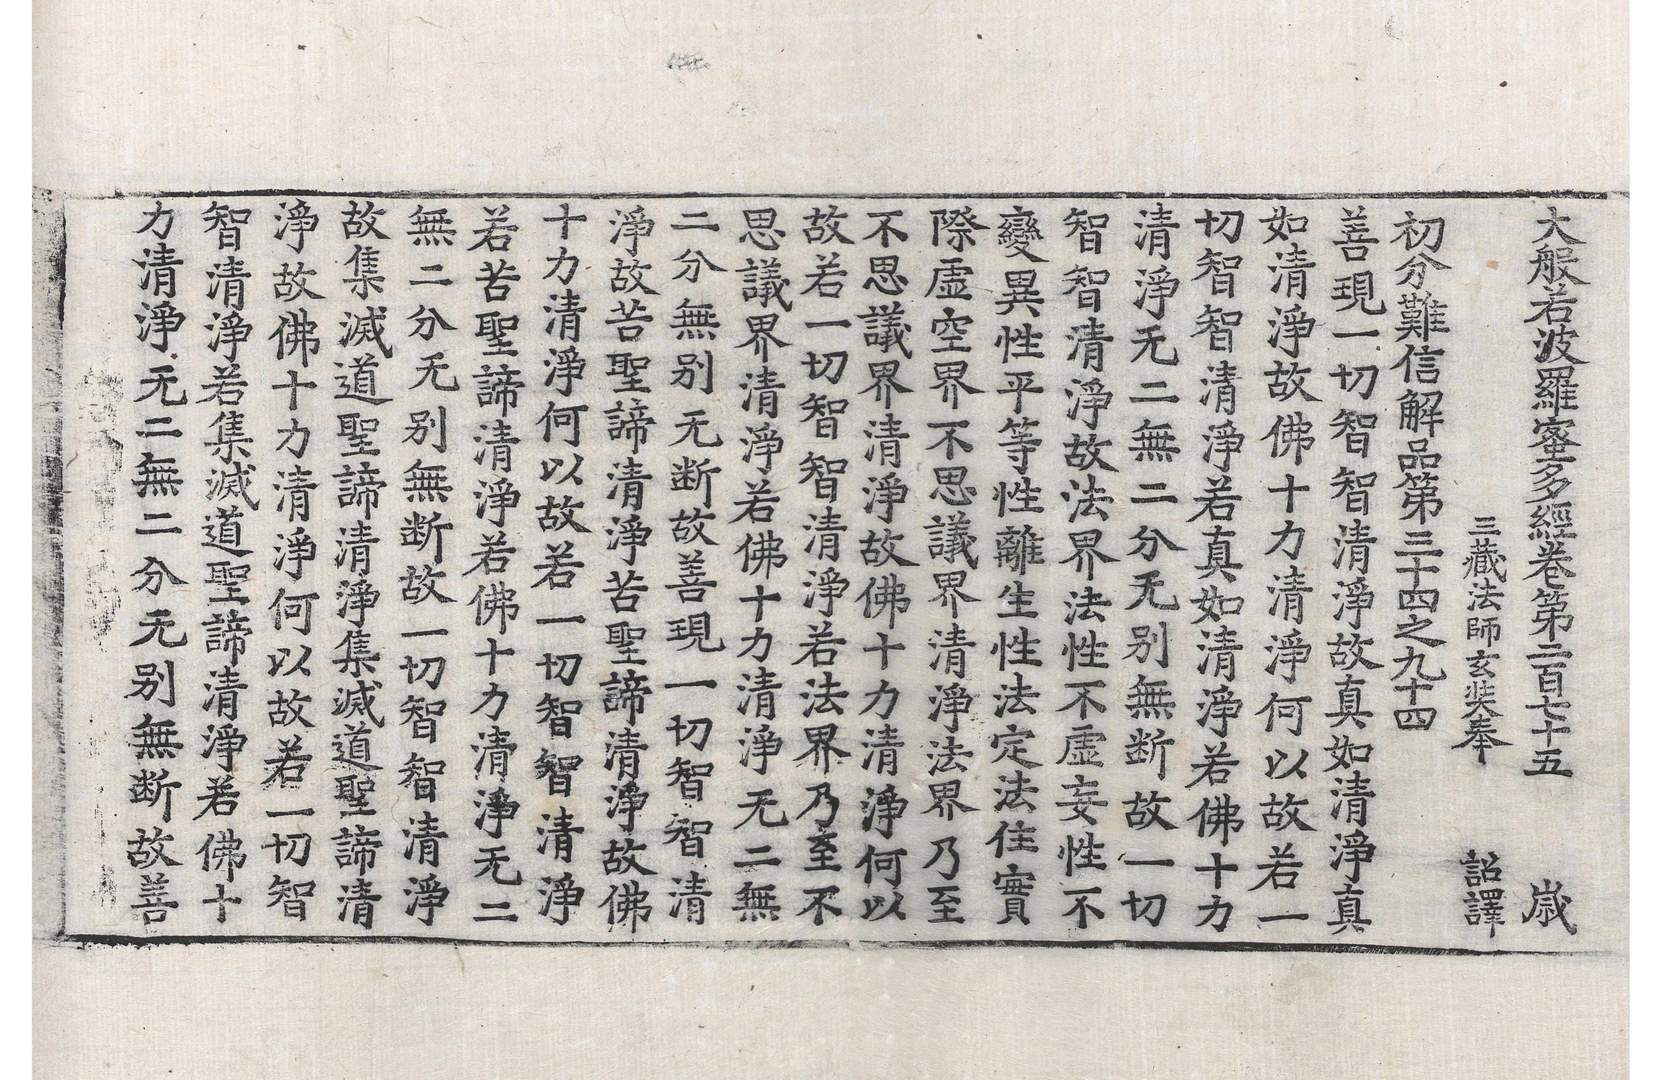 大般若波羅蜜多經卷第二百七十五 歲
三藏法師玄奘奉 詔譯
初分難信解品第三十四之九十四
善現一切智智清淨故真如清淨真
如清淨故佛十力清淨何以故若一
切智智清淨若真如清淨若佛十力
清淨无二無二分无别無断故一切
智智清淨故法界法性不虛妄性不
變異性平等性離生性法定法住實
際虛空界不思議界清淨法界乃至
不思議界清淨故佛十力清淨何以
故若一切智智清淨若法界乃至不
思議界清淨若佛十力清淨无二無
二分無别无断故善現一切智智清
淨故苦聖諦清淨苦聖諦清淨故佛
十力清淨何以故若一切智智清淨
若苦聖諦清淨若佛十力清淨无二
無二分无别無断故一切智智清淨
故集滅道聖諦清淨集滅道聖諦清
淨故佛十力清淨何以故若一切智
智清淨若集滅道聖諦清淨若佛十
力清淨无二無二分无别無断故善